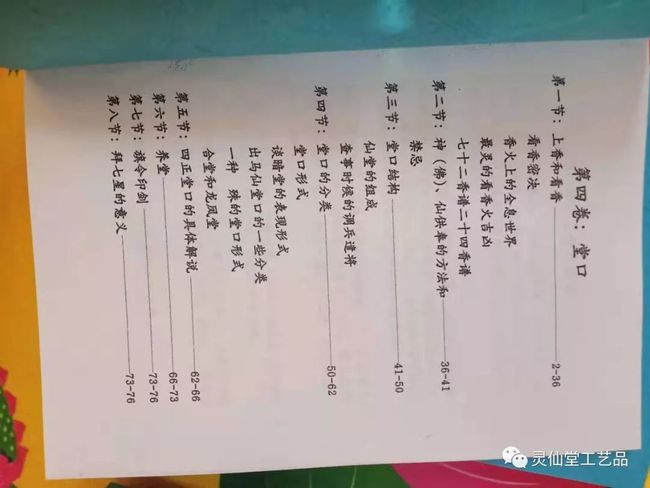 第四卷：堂口
第一节：上香和看香 2-36
看香密决
香火上的全息世界
最灵的看香火吉凶
七十二香谱二十四香谱
第二节：神（佛）、仙供奉的方法和
禁忌 36-41
第三节：堂口结构 41-50
仙堂的组成
查事时候的调兵遣将
第四节：堂口的分类 50-62
堂口形式
谈暗堂的表现形式
出马仙堂口的一些分类
一种 殊的堂口形式
合堂和龙凤堂
第五节：四正堂口的具体解说 62-66
第六节：养堂 66-73
第七节：旗令印剑 73-76
第八节：拜七星的意义 73-76
灵仙堂工艺品